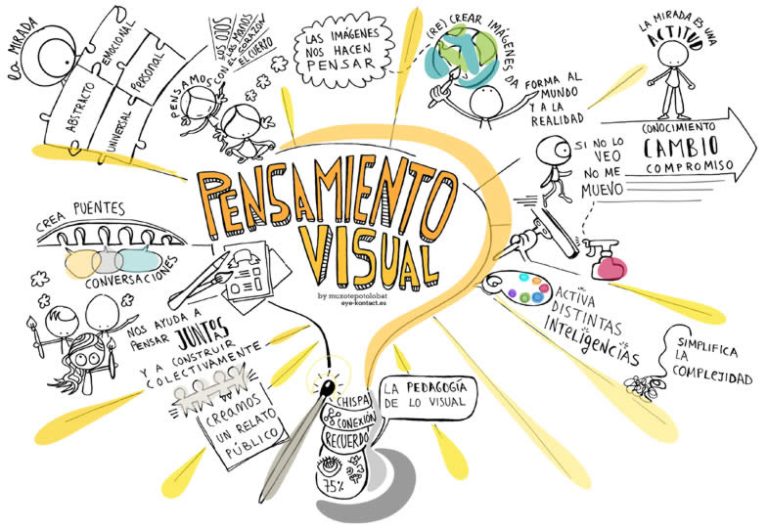 LA MIRADA
EMOCIONAL
PERSONAL
ABSTRACTO
UNIVERSAL
PENSAMOS
CON
LOS OJOS
LAS MANOS
EL CORAZÓN
EL CUERPO
LAS IMÁGENES
NOS HACEN
PENSAR
(RE) CREAR IMÁGENES DA
FORMA AL
MUNDO
Y A LA
REALIDAD
LA MIRADA ES UNA
ACTITUD
CONOCIMIENTO
CAMBIO
COMPROMISO
SI NO LO
VEO
NO ME
MUEVO
PENSAMIENTO
VISUAL
by muxotepotolobat
eye-kontact.es
CREA PUENTES
CONVERSACIONES
NOS AYUDA A
PENSAR JUNTOS
Y A CONSTRUIR
COLECTIVAMENTE
CREAMOS
UN RELATO
PÚBLICO
CHISPA
CONEXIÓN
RECUERDO
75%
LA PEDAGOGÍA
DE LO VISUAL
ACTIVA
DISTINTAS
INTELIGENCIAS
SIMPLIFICA
LA
COMPLEJIDAD